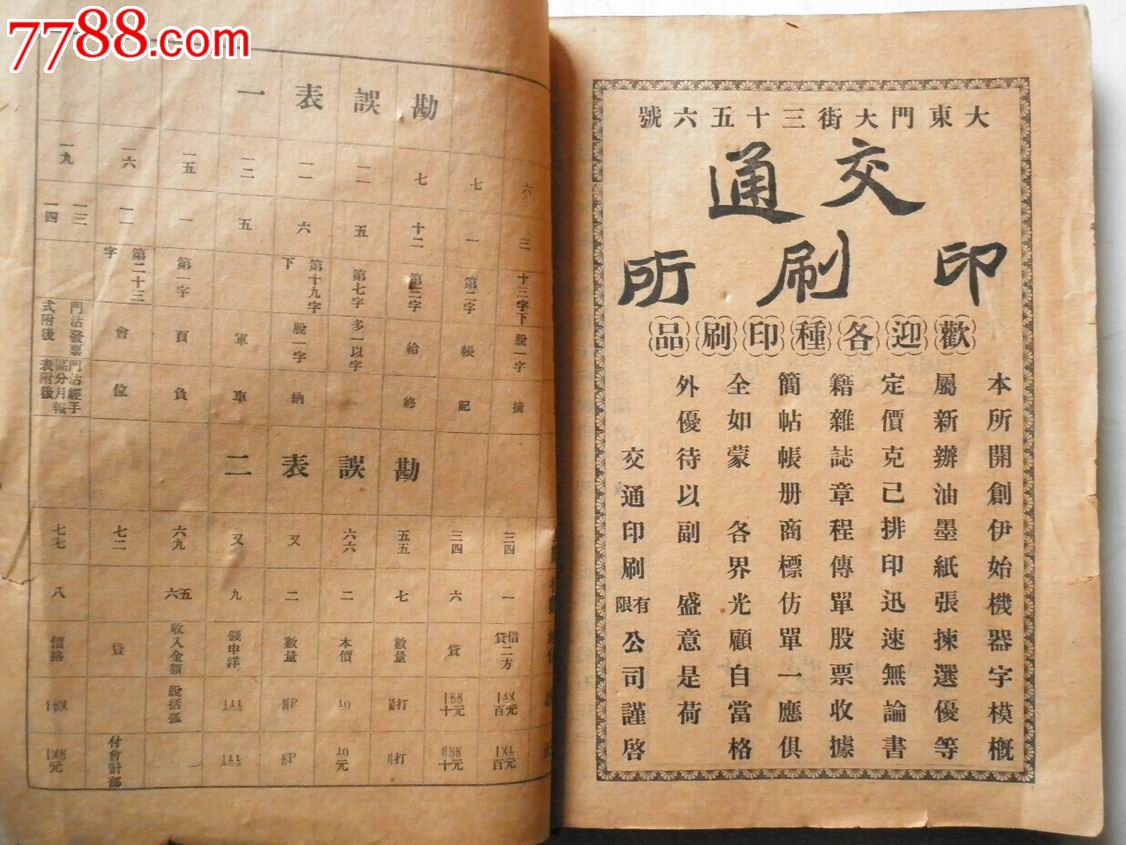 7788.com
大東門大街三十五六號
交通
印刷所
歡迎各種印刷品
本所開創伊始機器字模概
屬新辦油墨紙張揀選優等
定價克己排印迅速無論書
籍雜誌章程傳單股票收據
簡帖帳册商標仿單一應俱
全如蒙 各界光顧自當格
外優待以副 盛意是荷
交通印刷有限公司謹啓
勘誤表一
六 三 十三字下 脫一字 摘
七 一 第二字 帳 記
七 十二 第三字 給 終
五 第七字 多一以字
六 第十九字下 脫一字 納
五 軍 車
一五 一 第一字 頁 負
一六 第二十三字 會 位
一九 一三 一四 門沽發票式附後 門沽經手區分月報表附後
勘誤表二
三四 一 借貸二方
三四 六 貨
五五 七 數量 打 打
六六 二 本價 10 10元
又 二 數量
又 九
六九 五六 收入金額 脫括弧
七二 貨 付會計部
七七 八 價格